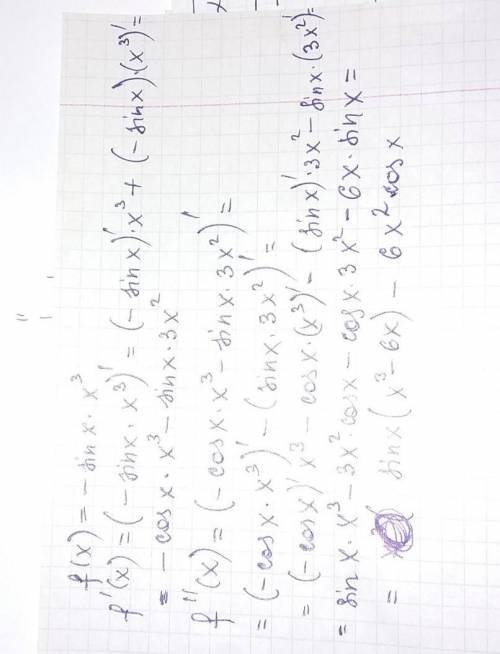 f(x) = - sin x · x³
f'(x) = (- sin x · x³)' = (- sin x)' · x³ + (- sin x) · (x³)' =
= - cos x · x³ - sin x · 3x²
f''(x) = (- cos x · x³ - sin x · 3x²)' =
= (- cos x · x³)' - (sin x · 3x²)' =
= (- cos x)' x³ - cos x · (x³)' - (sin x)' · 3x² - sin x · (3x²)' =
= sin x · x³ - 3x² · cos x - cos x · 3x² - 6x · sin x =
= sin x (x³ - 6x) - 6x² cos x